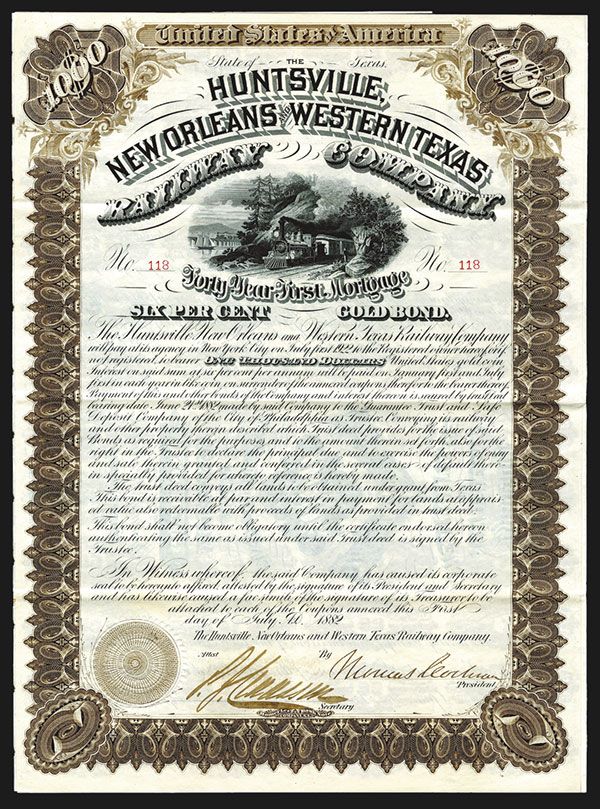 United States of America
$1000
$1000
State of Texas.
THE
HUNTSVILLE,
NEW ORLEANS AND WESTERN TEXAS
RAILWAY COMPANY.
No. 118
No. 118
Forty Year First Mortgage
SIX PER CENT GOLD BOND.
The Huntsville New Orleans and Western Texas Railway Company
will pay at its agency in New York City on July first 1922 to the Registered owner hereof or if
not registered to bearer ONE THOUSAND DOLLARS United States gold coin
Interest on said sum at six per cent per annum will be paid on January first and July
first in each year in like coin on surrender of the annexed coupons therefor to the bearer thereof
Payment of this and other bonds of the Company and interest thereon is secured by trust deed
bearing date June 21st 1882 made by said Company to the Guarantee Trust and Safe
Deposit Company of the City of Philadelphia as Trustee Conveying its railway
and other property therein described which Trust deed provides for the issue of said
Bonds as required for the purposes and to the amount therein set forth also for the
right in the Trustee to declare the principal due and to exercise the powers of entry
and sale therein granted and conferred in the several cases of default there-
in specially provided for whereto reference is hereby made.
The trust deed conveys all lands to be obtained under grant from Texas
This bond is receivable at par and interest in payment for lands at apprais-
ed value also redeemable with proceeds of lands as provided in trust deed.
This bond shall not become obligatory until the certificate endorsed hereon
authenticating the same as issued under said Trust deed is signed by the
Trustee.
In Witness whereof, the said Company has caused its corporate
seal to be hereunto affixed, attested by the signature of its President and Secretary
and has likewise caused a fac simile of the signature of its Treasurer to be
attached to each of the Coupons annexed this First
day of July A.D. 1882
The Huntsville, New Orleans and Western Texas Railway Company.
Attest
By
Thomas Cochran
President.
Secretary